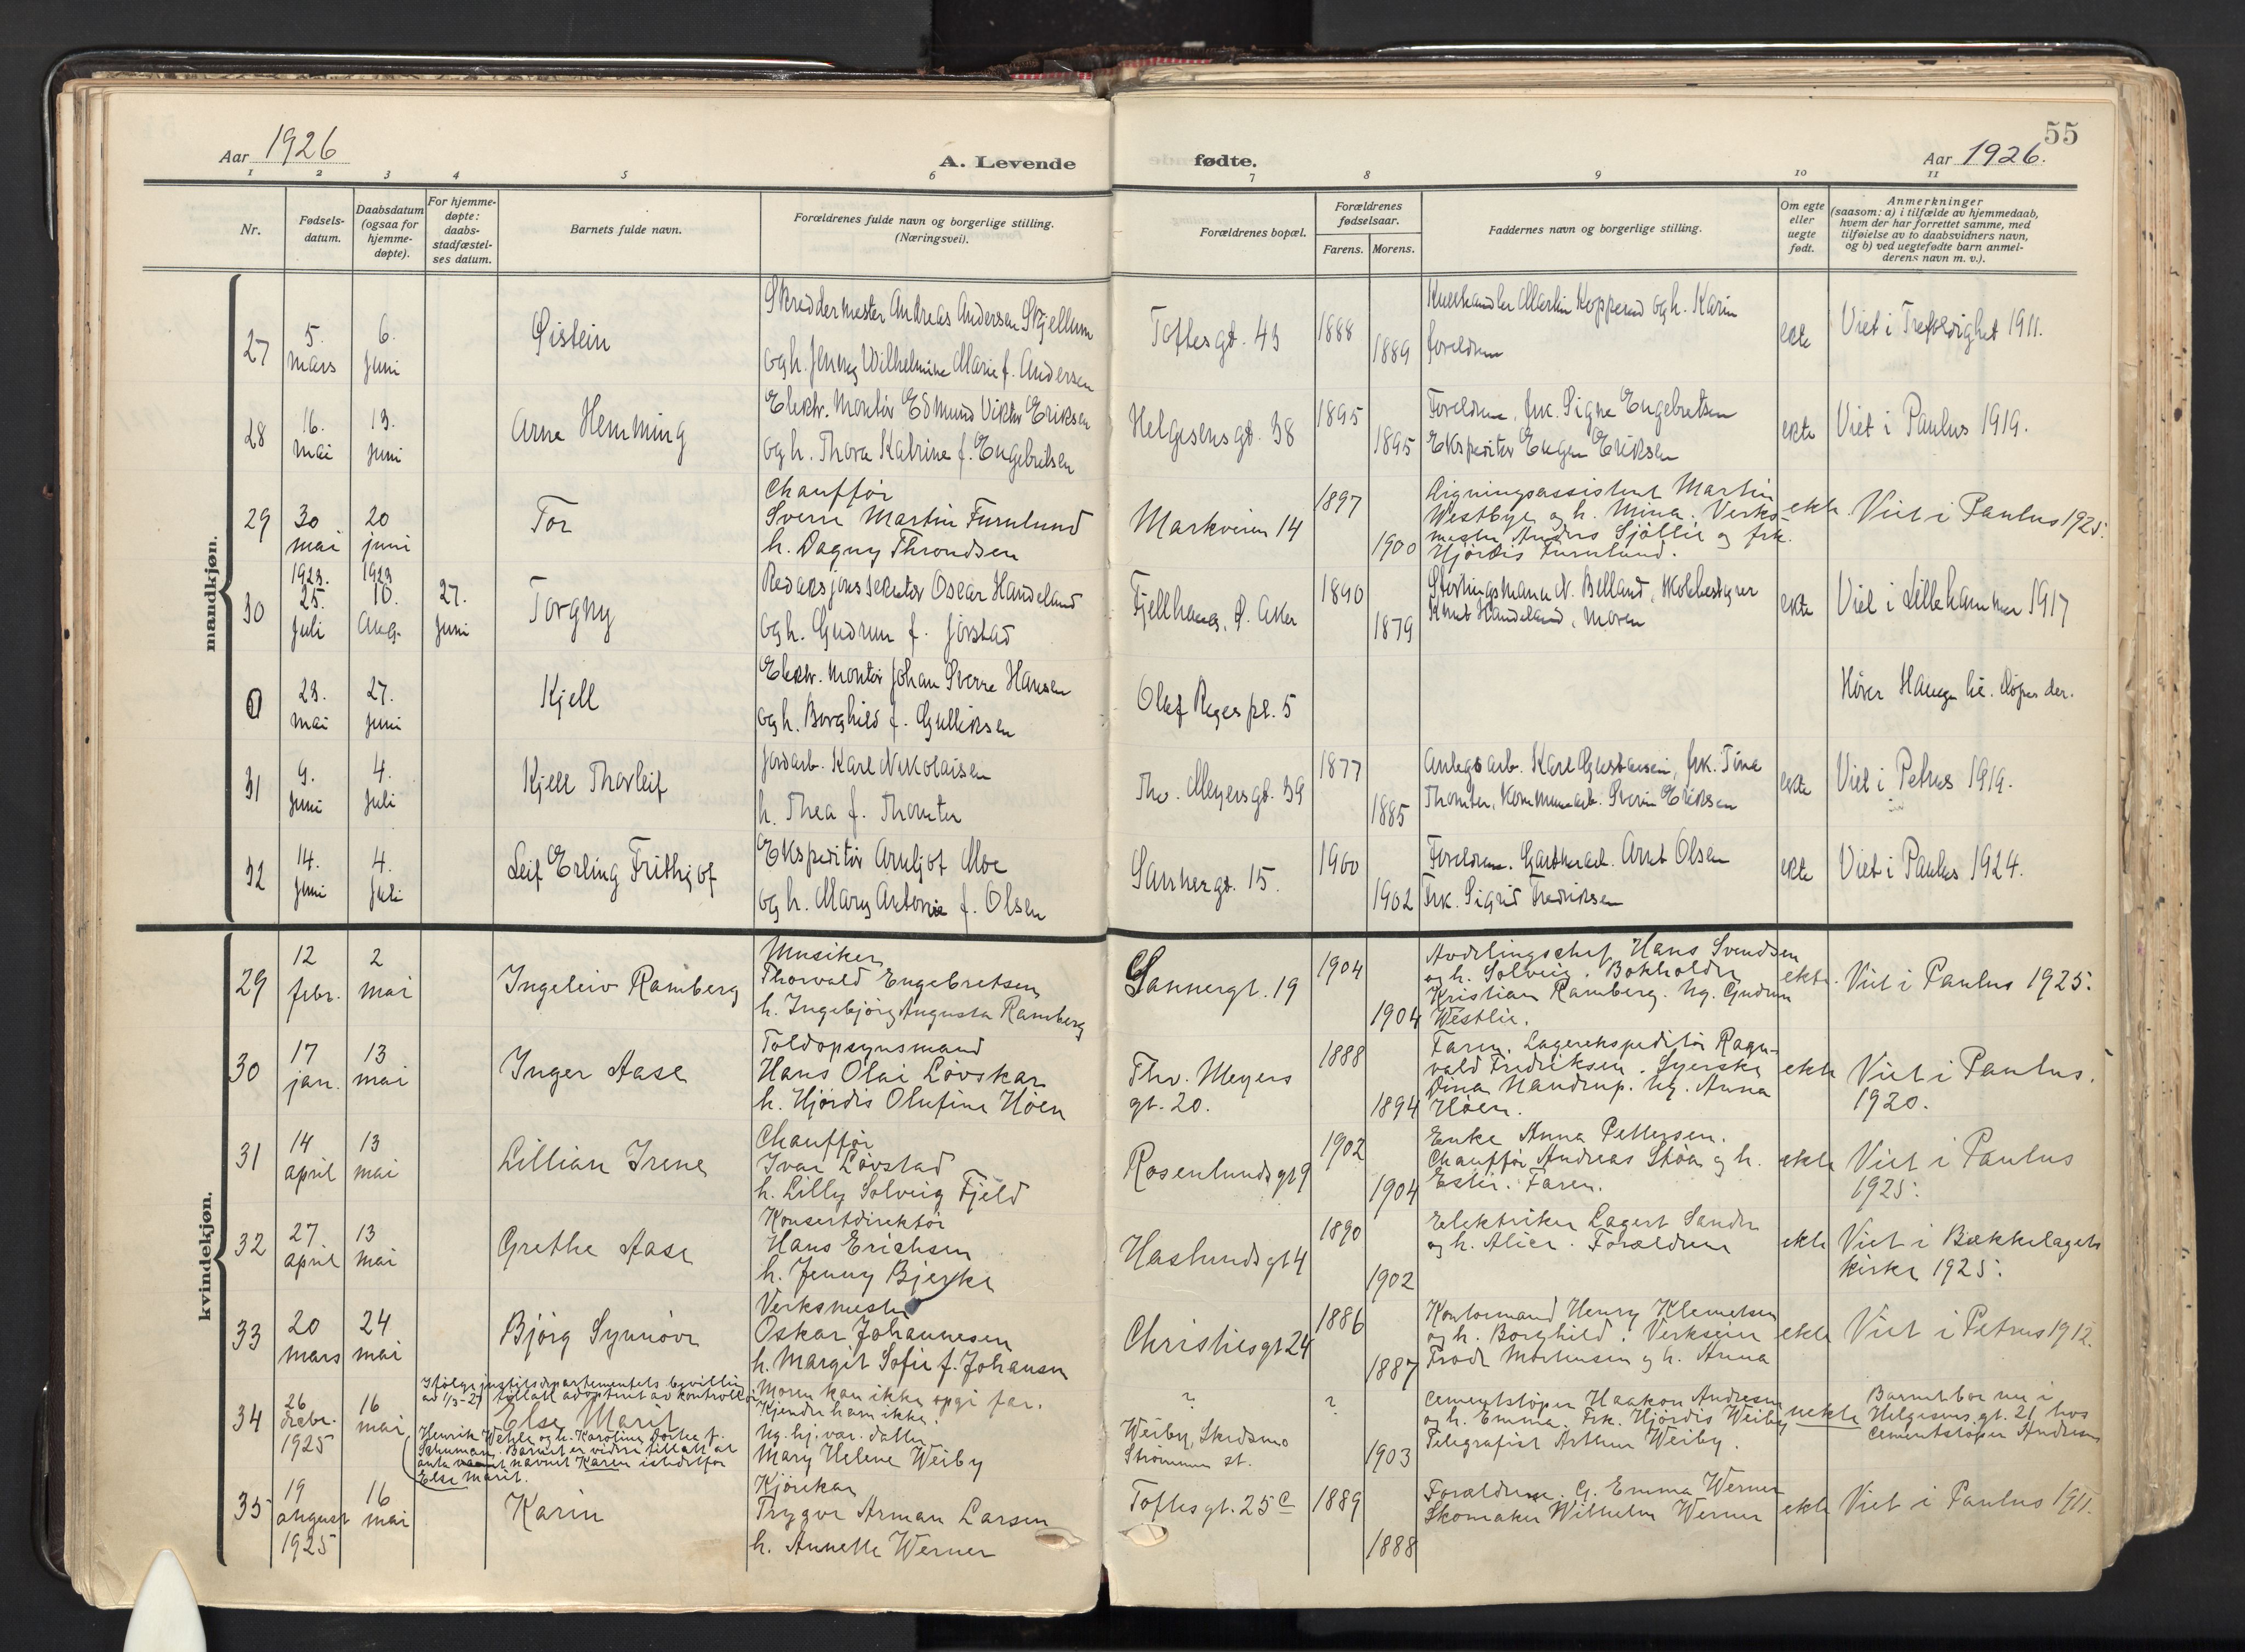 Aar 1926
A. Levende
fødte.
55
Aar 1926.
1 2 3 4 5 6 7 8 9 10 11
Nr.
Fødsels-
datum.
Daabsdatum
(ogsaa for
hjemme-
døpte).
For hjemme-
døpte:
daabs-
stadfæstel-
ses datum.
Barnets fulde navn.
Forældrenes fulde navn og borgerlige stilling.
(Næringsvei).
Forældrenes bopæl.
Forældrenes
fødselsaar.
Farens. Morens.
Faddernes navn og borgerlige stilling.
Om egte
eller
uegte
født.
Anmerkninger
(saasom: a) i tilfælde av hjemmedaab,
hvem der har forrettet samme, med
tilføielse av to daabsvidners navn,
og b) ved uegtefødte barn anmel-
derens navn m. v.).
mandkjøn.
27
5.
mars
6.
juni
Øistein
Skreddermester Andreas Andersen Skjellum
og h. Jenny Wilhelmine Marie f. Andersen
Toftesgt. 43
1888
1889
Martin og h. Karin
foreldrene
ekte
Viet i Trefoldighet 1911.
28
16.
mai
13.
juni
Arne Hemming
Elektr. montør Edmund Viktor Eriksen
og h. Thora Katrine f. Engebretsen
Helgesensgt. 38
1895
1895
Foreldrene, frk. Signe Engebretsen
Ekspeditør Eugen Eriksen
ekte
Viet i Paulus 1919.
29
30
mai
20
juni
Tor
Chauffør
Sverre Martin Furulund
h. Dagny Throndsen
Markveien 14
1897
1900
Ligningsassistent Martin
Westbye og h. Mina. Verks-
mester Anders Sjøllie og frk.
Hjørdis Furulund.
ekte
Viet i Paulus 1925.
30
1923.
25.
juli
1923
10.
Aug.
27.
juni
Torgny
Redaksjonssekretær Oscar Handeland
og h. Gudrun f. Jørstad
Fjellhaug, Ø. Aker
1890
1879
Stortingsmann N. Belland, skolebestyrer
Knut Handeland, moren
ekte
Viet i Lillehammer 1917
0
23.
mai
27.
juni
Kjell
Elektr. montør Johan Sverre Hansen
og h. Borghild f. Gulliksen
Olaf Ryes pl. 5
Hører Hauge til. Døpes der.
31
9.
juni
4.
juli
Kjell Thorleif
Jordarb. Karl Nikolaisen
h. Thea f. Thomter
Thv. Meyersgt. 39
1877
1885
Anlegsarb. Karl Gustavsen, frk. Tina
Thomter, kommunearb. Sverin Eriksen
ekte
Viet i Petrus 1919.
32
14.
juni
4.
juli
Leif Erling Frithjof
Ekspeditør Arnljot Moe
og h. Mary Antonie f. Olsen
Sannergt. 15.
1900
1902
Foreldrene. Olsen
Frk. Sigrid Fredriksen
ekte
Viet i Paulus 1924.
kvindekjøn.
29
12
febr.
2
mai
Ingeleiv Ramberg
Musiker
Thorvald Engebretsen
h. Ingebjørg Augusta Ramberg
Sannergt. 19
1904
1904
Avdelingschef Hans Svendsen
og h. Solveig. Bokholder
Kristian Ramberg. Ug. Gudrun
Westlie.
ekte.
Viet i Paulus 1925.
30
17
jan.
13
mai
Inger Aase
Toldopsynsmand
Hans Olai Løvskar
h. Hjørdis Olufine Høen
Thv. Meyers
gt. 20.
1888
1894
Faren. Lagerekspeditør Ragn-
vald Fredriksen. Syerske
Dina Nandrup. Ug. Anna
Høen.
ekte
Viet i Paulus.
1920.
31
14
april
13
mai
Lillian Irene
Chauffør
Ivar Løvstad
h. Lilly Solveig Fjeld
Rosenlundsgt 9
1902
1904
Enke Anna Pettersen.
Chauffør Andreas Støa og h.
Ester. Faren.
ekte
Viet i Paulus
1925.
32
27
april
13
mai
Grethe Aase
Konsertdirektør
Hans Erichsen
h. Jenny Bjerke
Haslundsgt 4
1890
1902
Elektriker Lagert Sander
og h. Alice. Forældrene
ekte
Viet i Bækkelagets
kirke 1925.
33
20
mars
24
mai
Bjørg Synnøve
Verksmester
Oskar Johannesen
h. Margit Sofie f. Johansen
Christiesgt 24
1886
1887
Kontormand Henry Klemetsen
og h. Borghild. Verkseier
Frode Mortensen og h. Anna
ekte
Viet i Petrus 1912.
34
26
decbr.
1925
16
mai
Ifølge justitsdepartementets bevilling
av 1/3-27 tillatt adoptert av kontrollør
Else Marit
Henrik Wehle og h. Karoline Dorthea f.
Schuman. Barnet er videre tillatt at
anta navnet Karen istedetfor
Else Marit.
Moren kan ikke opgi far.
Kjender ham ikke.
Ug. hj.vær. datter
Mary Helene Weiby
?
Weiby, Skedsmo
Strømmen st.
?
1903
Cementstøper Haakon Andresen
og h. Emma. Frk. Hjørdis Weiby
Telegrafist Arthur Weiby.
uekte
Barnet bor nu i
Helgesens. gt. 21 hos
Cementstøper Andresen
35
19
august
1925
16
mai
Karin
Kjørekar
Trygve Arman Larsen
h. Annette Werner
Toftesgt. 25 c
1889
1888
Forældrene. G. Emma Werner
Skomaker Wilhelm Werner
ekte
Viet i Paulus 1911.